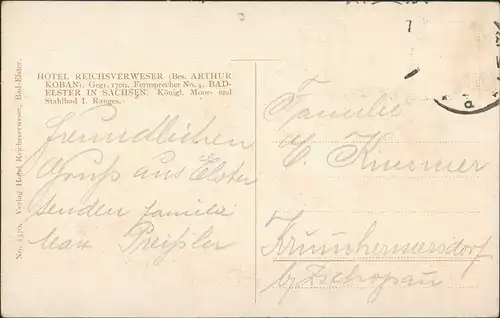 HOTEL REICHSVERWESER (Bes. ARTHUR
KOBAN). Gegr. 1799. Fernsprecher No. 4. BAD-
ELSTER IN SACHSEN. Königl. Moor- und
Stahlbad I. Ranges.
Verlag Hotel Reichsverweser, Bad-Elster.
freundlichen
Gruß aus Elster
senden familie
Max Preißler
Familie
Krumhermersdorf
b/ Zschopau